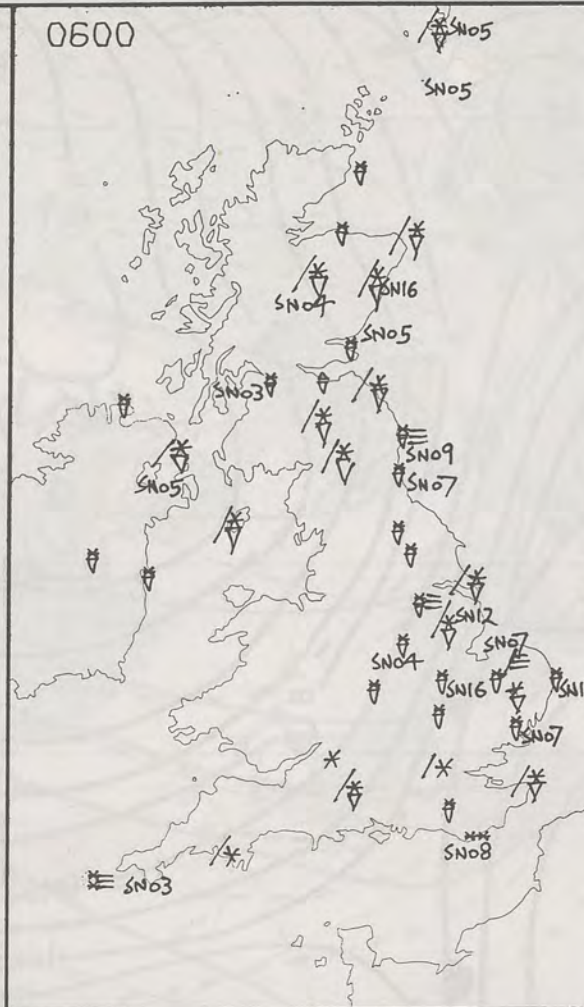 0600
SN05
SN05
SN04
SN16
SN05
SN03
SN09
SN07
SN05
SN12
SN07
SN04
SN16
SN1
SN07
SN08
SN03